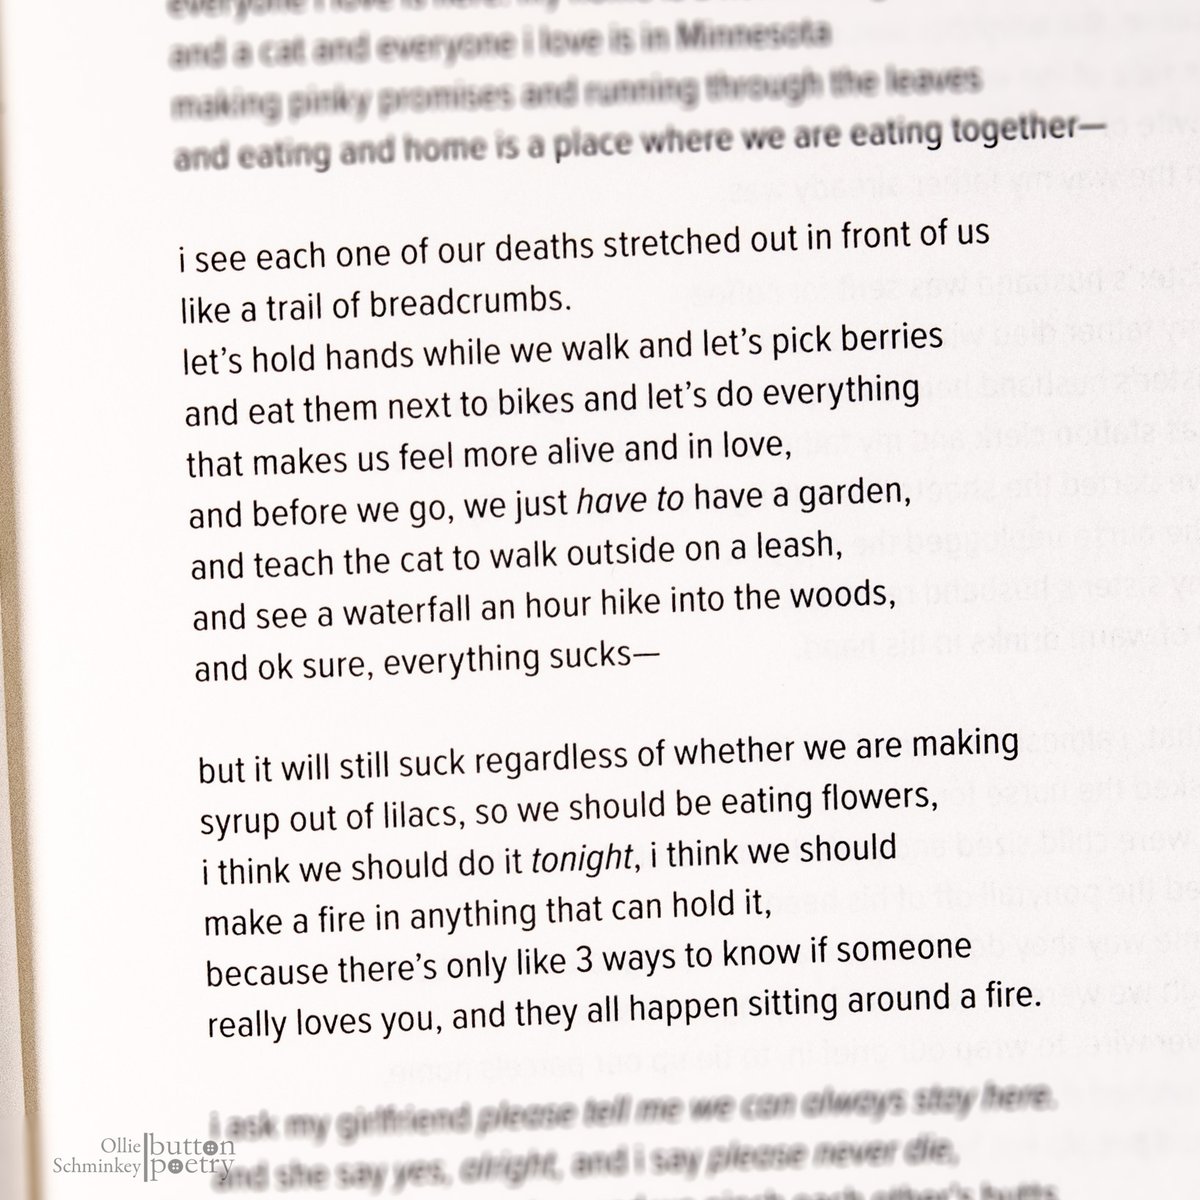 everyone i love is here. my home is a
and a cat and everyone i love is in Minnesota
making pinky promises and running through the leaves
and eating and home is a place where we are eating together—
i see each one of our deaths stretched out in front of us
like a trail of breadcrumbs.
let's hold hands while we walk and let's pick berries
and eat them next to bikes and let's do everything
that makes us feel more alive and in love,
and before we go, we just have to have a garden,
and teach the cat to walk outside on a leash,
and see a waterfall an hour hike into the woods,
and ok sure, everything sucks—
but it will still suck regardless of whether we are making
syrup out of lilacs, so we should be eating flowers,
i think we should do it tonight, i think we should
make a fire in anything that can hold it,
because there's only like 3 ways to know if someone
really loves you, and they all happen sitting around a fire.
i ask my girlfriend please tell me we can always stay here.
and she say yes, alright, and i say please never die,
each other's
Ollie Schminkey
button poetry